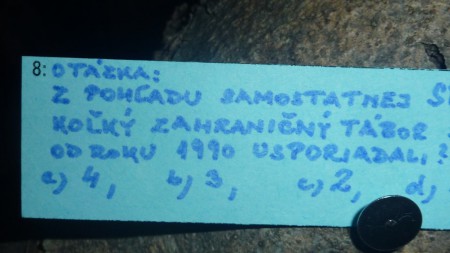 8: OTÁZKA:
Z POHĽADU SAMOSTATNEJ
KOĽKÝ ZAHRANIČNÝ TÁBOR
OD ROKU 1990 USPORIADAL?
a) 4, b) 3, c) 2, d)